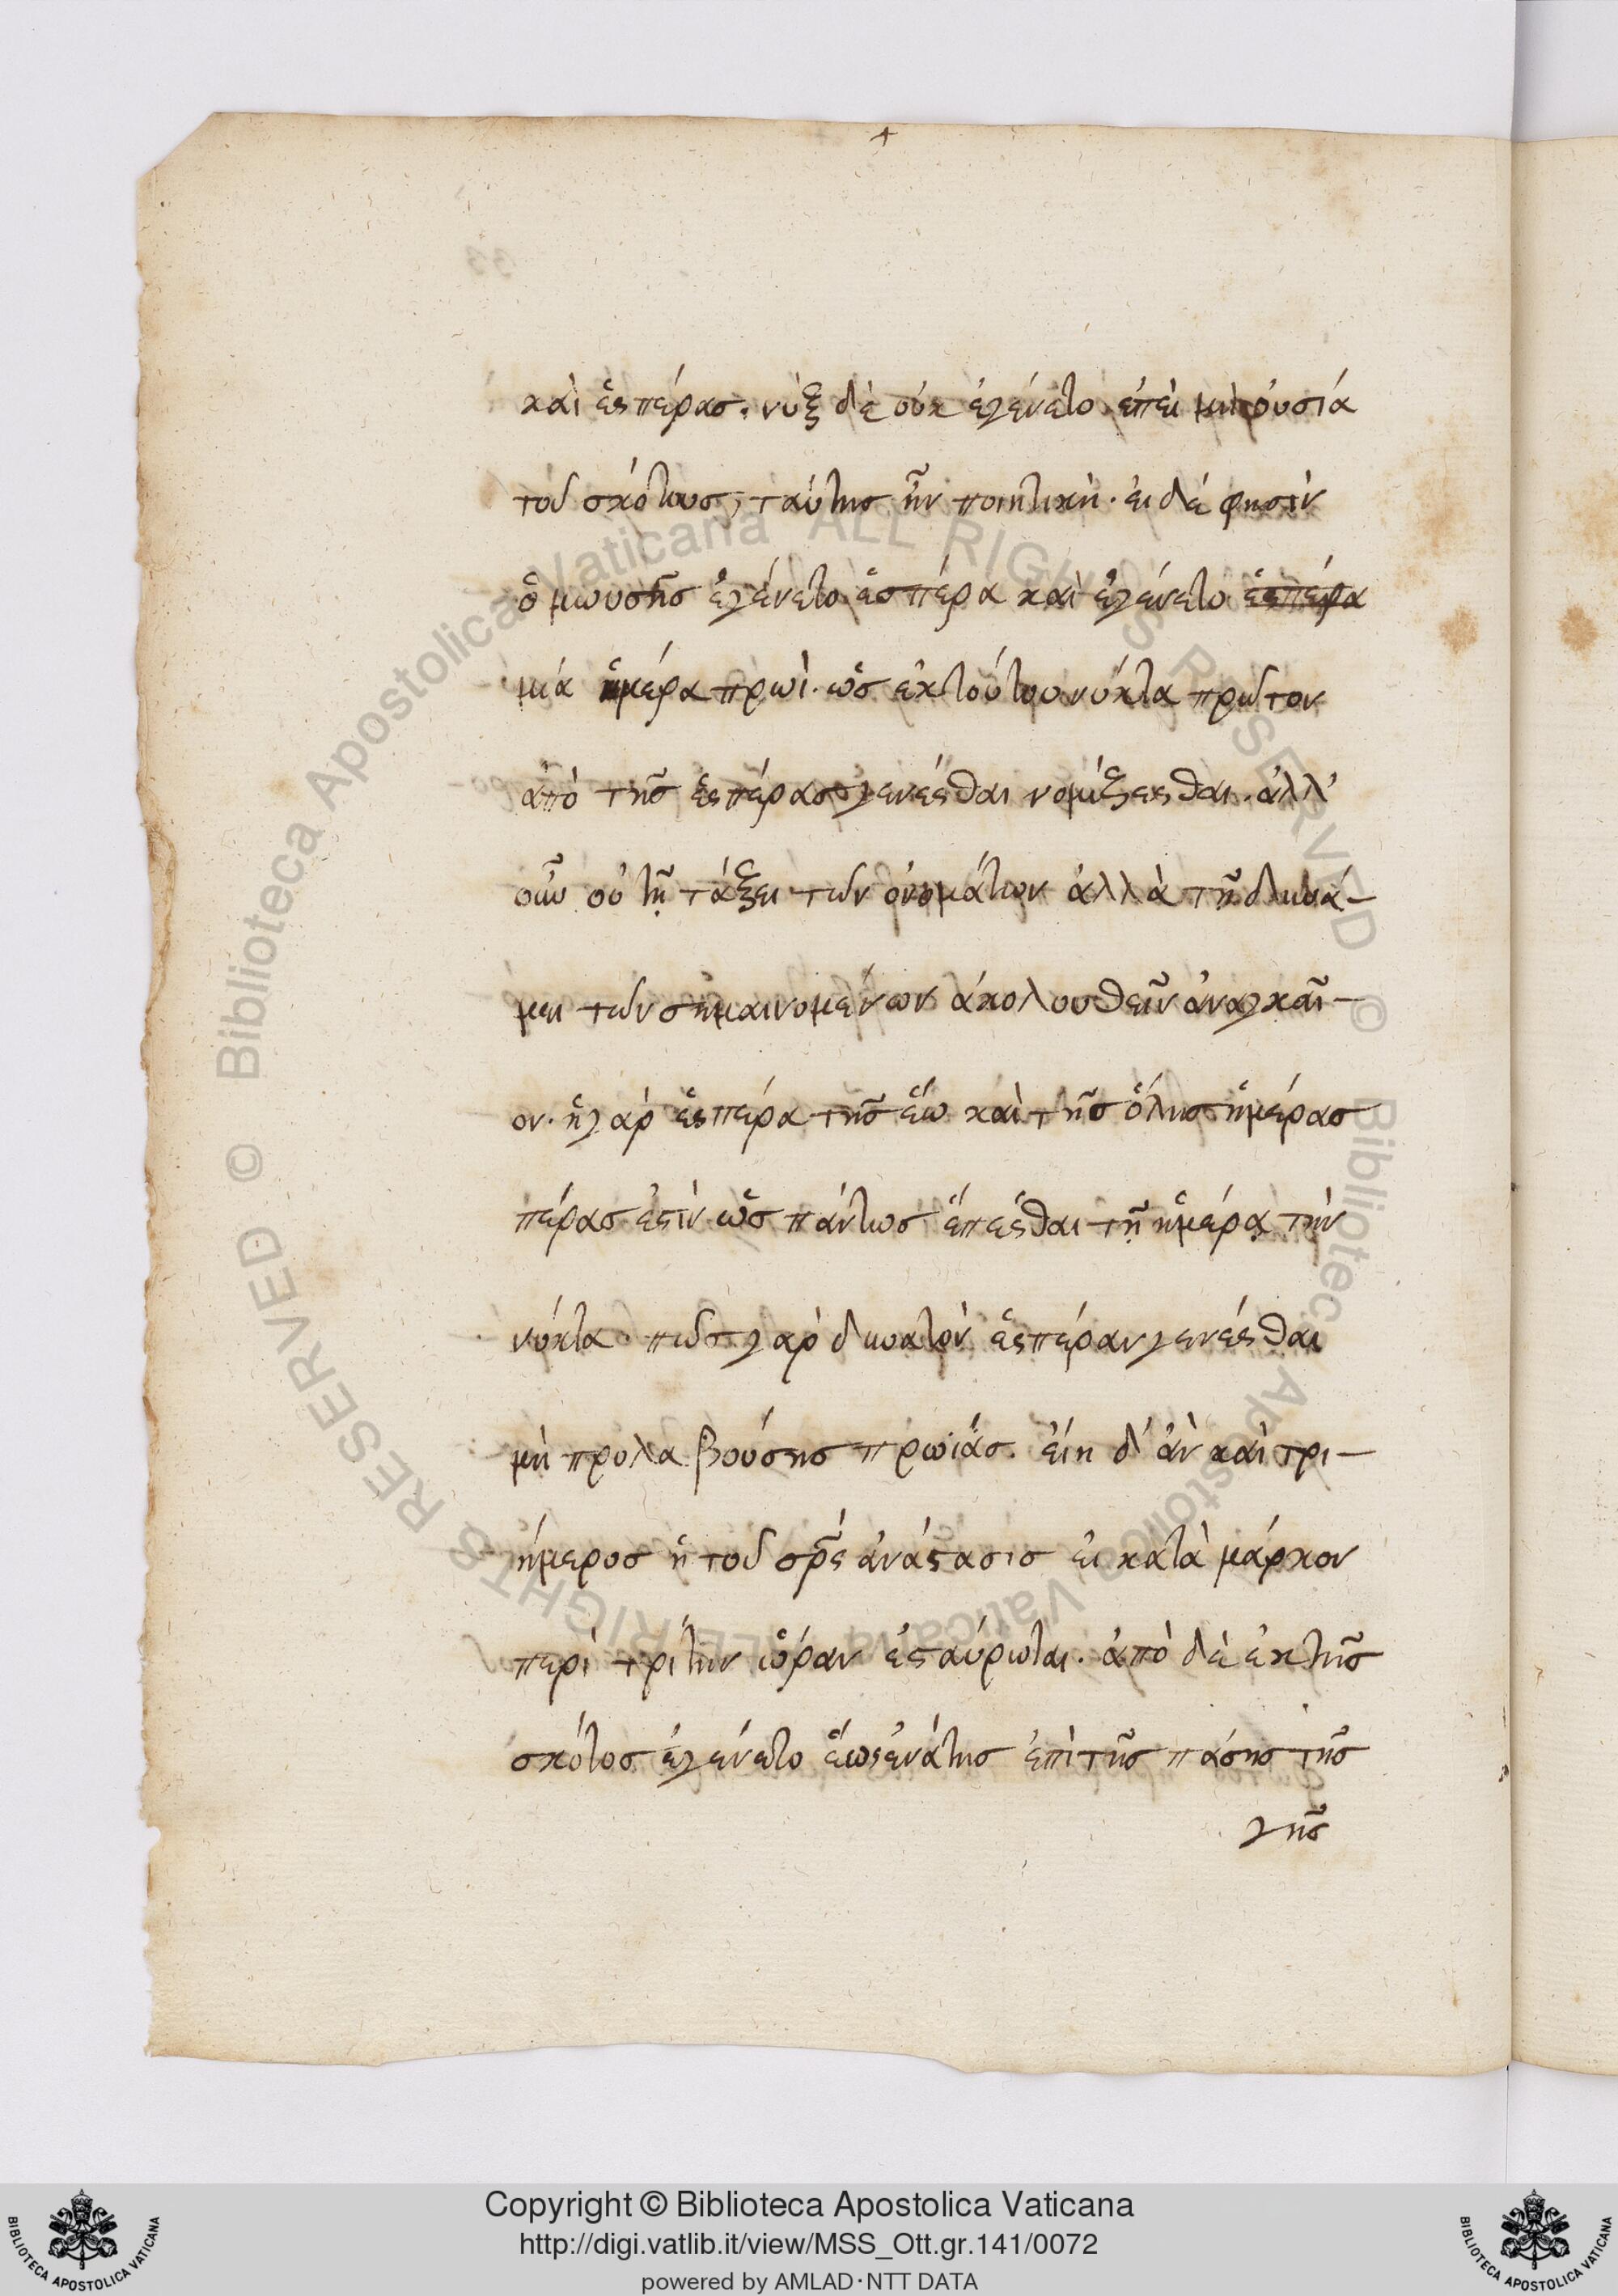 καὶ ἑσπέρας. νὺξ δὲ οὐκ ἐγένετο. ἐπεὶ μὴ οὐσία
τοῦ σκότους, ταύτης ἦν ποιητικὴ. εἰ δέ φησὶν
ὁ μωυσῆς ἐγένετο ἑσπέρα καὶ ἐγένετο ἑσπέρα
μία ἡμέρα πρωὶ. ὡς ἐκ τούτου νύκτα πρῶτον
ἀπὸ τῆς ἑσπέρας γενέσθαι νομίζεσθαι. ἀλλ'
οὖν οὐ τῇ τάξει τῶν ὀνομάτων ἀλλὰ τῇ δυνά-
μει τῶν σημαινομένων ἀκολουθεῖν ἀναγκαῖ-
ον. ἡ γὰρ ἑσπέρα τῆς ἕω καὶ τῆς ὅλης ἡμέρας
πέρας ἐστὶν ὡς πάντως ἕπεσθαι τῇ ἡμέρᾳ τὴν
νύκτα. πῶς γὰρ δυνατὸν ἑσπέραν γενέσθαι
μὴ προλαβούσης πρωίας. εἴη δ' ἂν καὶ τρι-
ήμερος ἡ τοῦ σρ̅ς ἀνάστασις εἰ κατὰ μάρκον
περὶ τρίτην ὥραν ἐσταύρωται. ἀπὸ δὲ ἕκτης
σκότος ἐγένετο ἕως ἐνάτης ἐπὶ τῆς πάσης τῆς
γῆς
Copyright © Biblioteca Apostolica Vaticana
http://digi.vatlib.it/view/MSS_Ott.gr.141/0072
powered by AMLAD·NTT DATA
BIBLIOTECA APOSTOLICA VATICANA
BIBLIOTECA APOSTOLICA VATICANA
© Biblioteca Apostolica Vaticana ALL RIGHTS RESERVED © Biblioteca Apostolica Vaticana ALL RIGHTS RESERVED